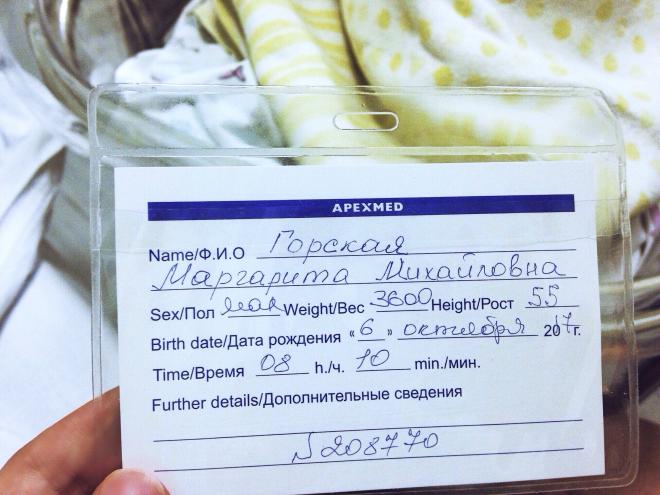 APEXMED
Name/Ф.И.О Горская
Маргарита Михайловна
Sex/Пол мал Weight/Вес 3600 Height/Рост 55
Birth date/Дата рождения «6» октября 2017г.
Time/Время 08 h./ч. 10 min./мин.
Further details/Дополнительные сведения
№208770